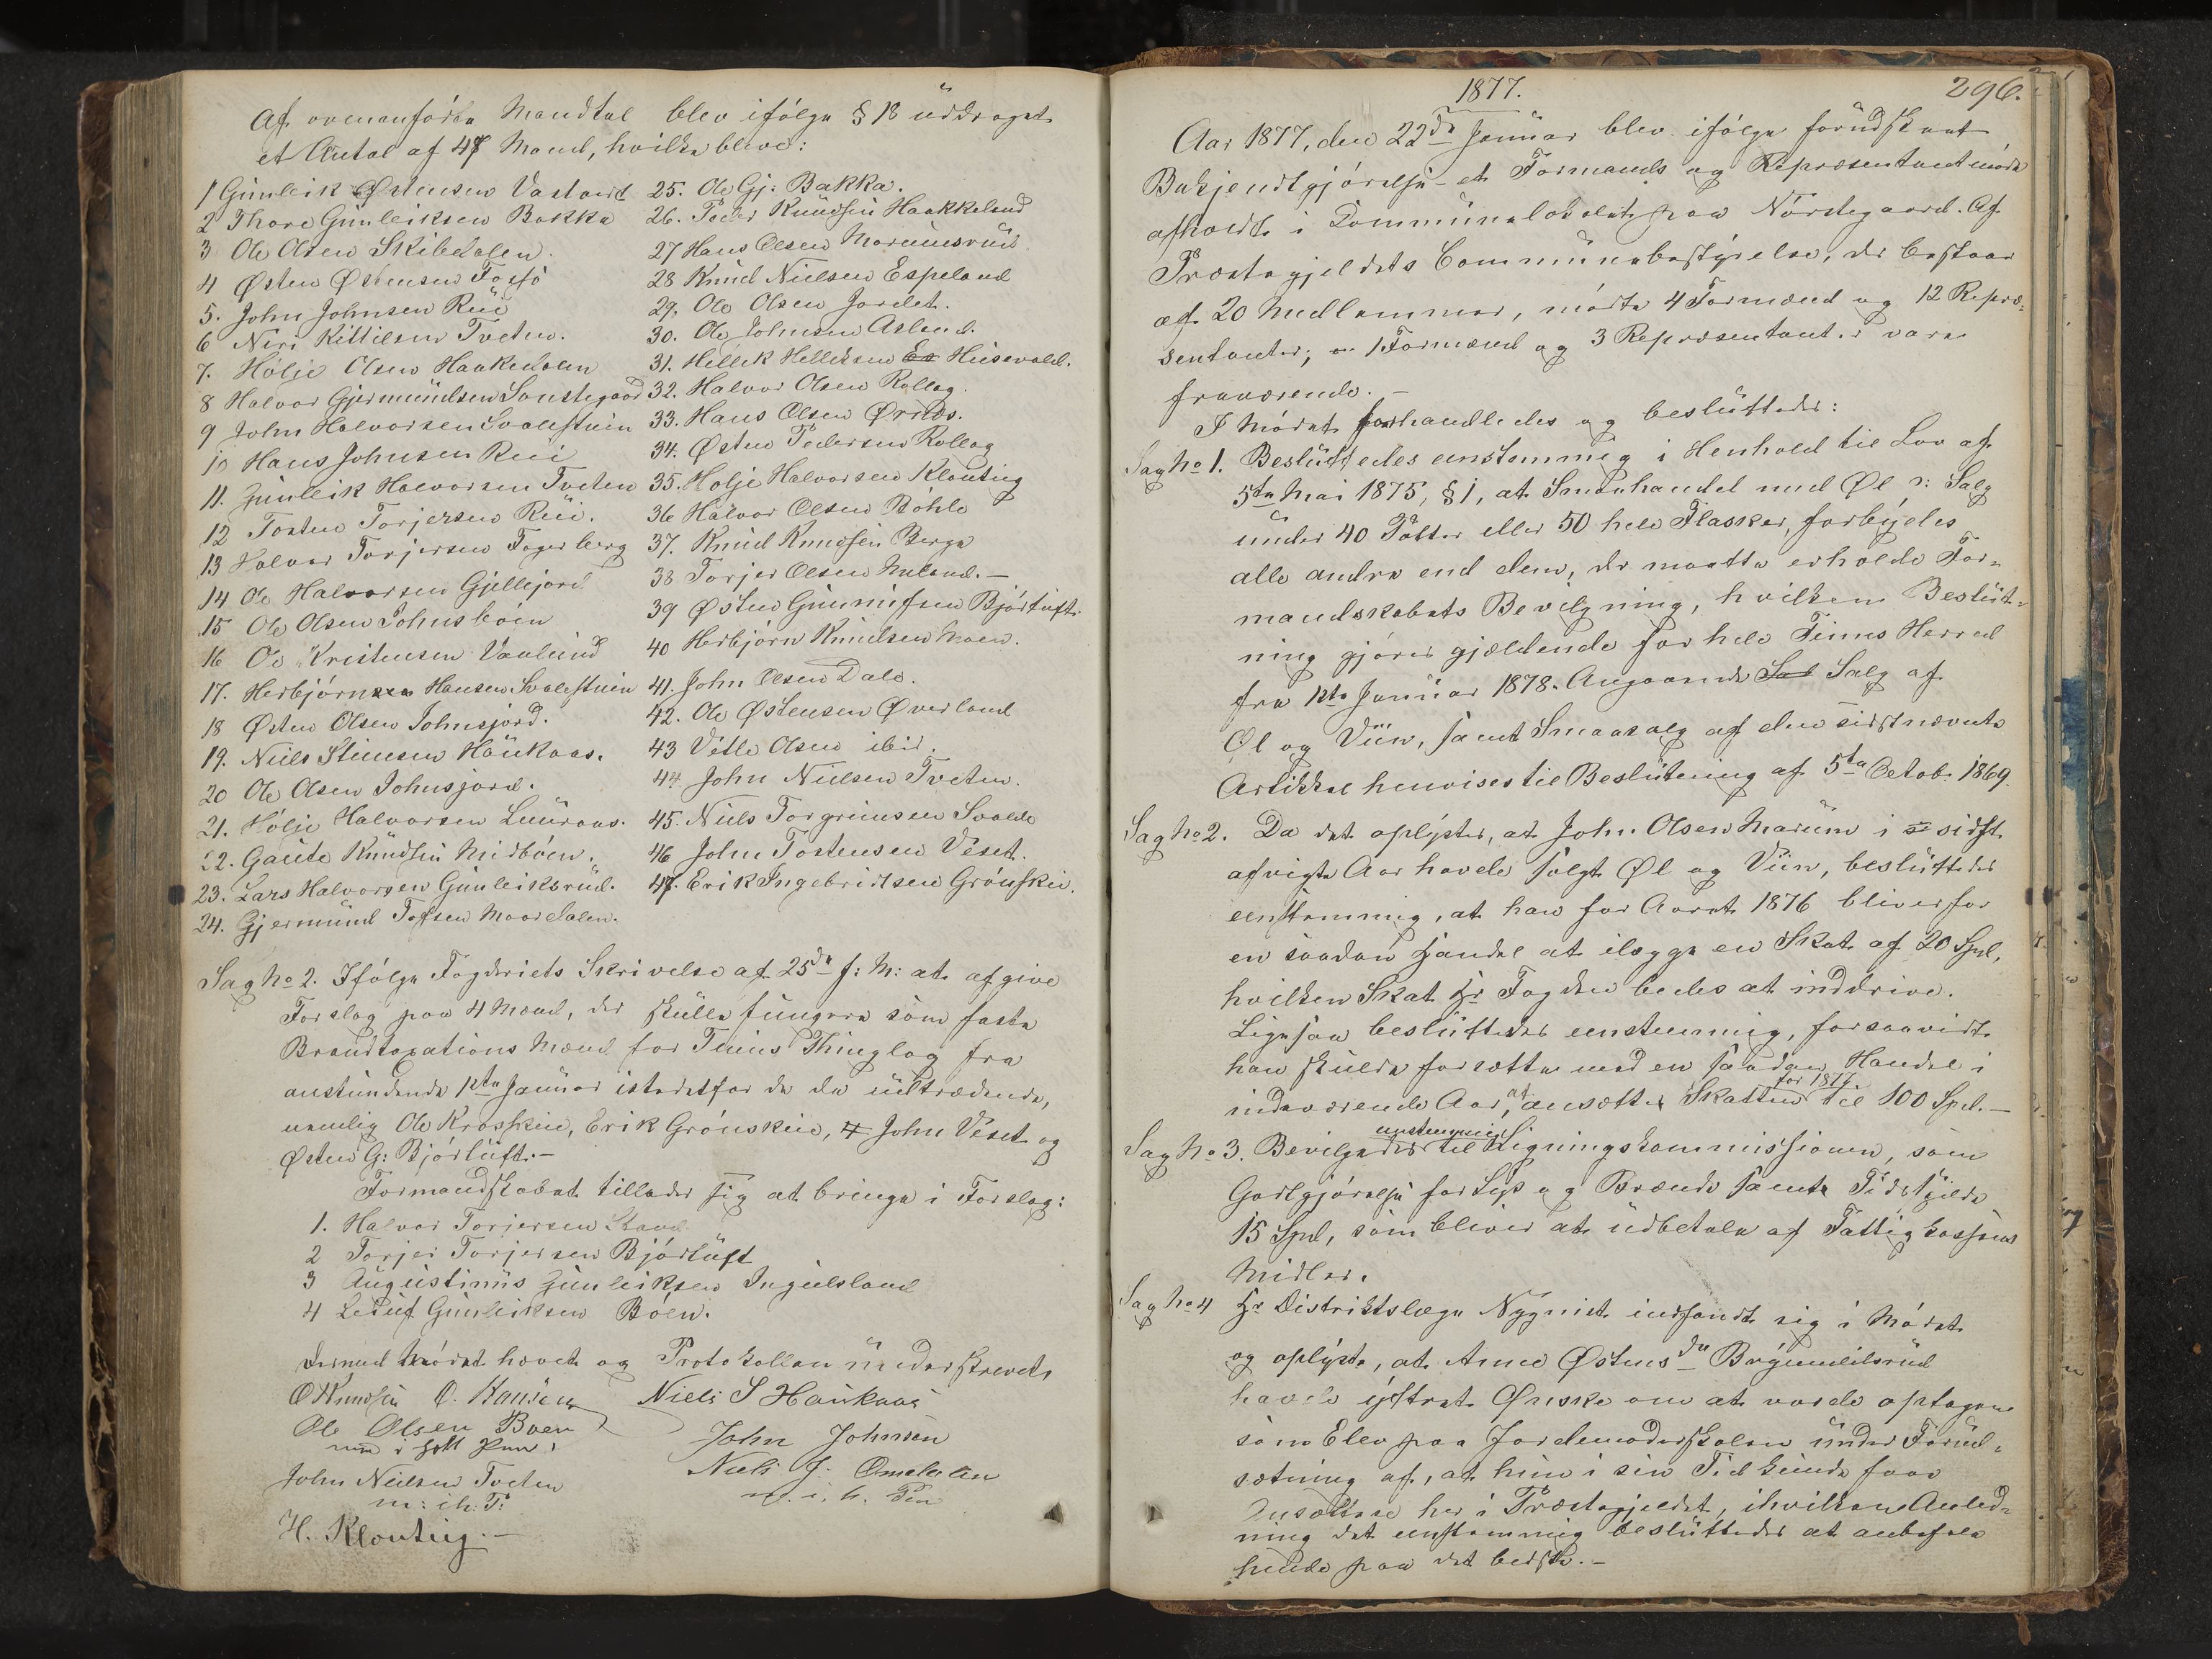 Af ovenanførte Mandtal blev ifølge § 18 uddraget
et Antal af 47 Mænd, hvilke bleve:
1 Gunleik Østensen Vastveit
2 Thore Gunleiksen Bakka
3 Ole Olsen Skibedalen.
4 Østen Østensen Fosso
5. John Johnsen Rui
6 Neri Kittilsen Tveten.
7. Hølje Olsen Haakedalen
8 Halvor Gjermundsen Sønstegaard
9 John Halvorsen Svalestuen
10 Hans Johnsen Rui
11. Gunleik Halvorsen Tveten
12 Tosten Torjersen Rui.
13 Halvor Torjersen Fagerberg
14 Ole Halvorsen Gjellejord
15 Ole Olsen Johnsbøen
16 Ole Kristensen Vaulund
17. Herbjørn Hansen Svalestuen
18 Østen Olsen Johnsjord.
19. Niels Steensen Haukaas.
20 Ole Olsen Johnsjord.
21. Hølje Halvorsen Luuraas.
22. Gaute Knudsen Midbøen.
23. Lars Halvorsen Gunleiksrud.
24. Gjermund Tofsen Maardalen.
25. Ole Gj: Bakka.
26. Peder Knudsen Haakkeland
27 Hans Olsen Mariusrud
28 Knud Nielsen Espeland
29. Ole Olsen Jordet.
30. Ole Johnsen Asland.
31. Hellek Helleksen Es Husevold.
32. Halvor Olsen Rollag.
33. Hans Olsen Ørnæs.
34. Østen Pedersen Rollag
35. Holje Halvorsen Klonteig
36 Halvor Olsen Bøhle
37. Knud Knudsen Berge
38 Torjer Olsen Meland.—
39 Østen Gunnufsen Bjørtuft.
40 Herbjørn Knudsen Moen.
41. John Olsen Dale.
42. Ole Østensen Øverland
43 Vetle Olsen ibid.
44. John Nielsen Tveten.
45. Niels Torgrimsen Svalde
46 John Tostensen Veset.
47. Erik Ingebrigtsen Grønskei.
Sag No 2. Ifølge Fogderiets Skrivelse af 25de f: M: at afgive
Forslag paa 4 Mænd, der skulle fungere som faste
Brandtaxations Mænd for Tinns Thinglag fra
anstundende 1ste Januar istedetfor de da udtrædende,
nemlig Ole Krosskei, Erik Grønskei, John Veset og
Østen G: Bjørtuft.—
Formandskabet tillader sig at bringe i Forslag:
1. Halvor Torjersen
2 Torjer Torjersen Bjørtuft
3 Augustinus Gunleiksen Ingulsland
4 Leduf Gunleiksen Bøen.
Dermed Mødet hævet og Protokollen underskrevet
O Knudsen O. Hansen Niels S Haukaas
Ole Olsen Boen John Johnsen
med i holt Pen
John Nielsen Tveten Niels J: Ømedalen
m: i h. P: m. i. h. Pen
H. Klonteig.—
1877. 296.
Aar 1877, den 22de Januar blev ifølge forudskeet
Bekjendtgjørelse et Formands og Repræsentantmøde
afholdt i Communelokalet paa Nørstegaard. Af
Præstegjeldets Communebestyrelse, der bestaar
af 20 Medlemmer, mødte 4 Formænd og 12 Repræ-
sentanter; 1 Formænd og 3 Repræsentanter vare
fraværende.—
I Mødet forhandledes og besluttedes:
Sag No 1. Besluttedes eenstemmig i Henhold til Lov af
5te Mai 1875, § 1, at Smaahandel med Øl ɔ: Salg
under 40 Potter eller 50 hele Flasker, forbydes
alle andre end dem, der maatte erholde For-
mandskabets Bevilgning, hvilken Beslut-
ning gjøres gjældende for hele Tinns Herred
fra 1ste Januar 1878. Angaaende Sal Salg af
Øl og Viin, samt Smaasalg af den sidstnævnte
Artikkel henvises til Beslutning af 5te Octob. 1869.
Sag No 2. Da det oplystes, at John Olsen Marum i si sidst
afvigte Aar havde solgt Øl og Viin, besluttedes
eenstemmig, at han for Aaret 1876 bliver for
en saadan Handel at ilægge en Skat af 20 Spd,
hvilken Skat Hr Fogden bedes at inddrive.
Ligesaa besluttedes eenstemmig, forsaavidt
han skulde forsætte med en saadan Handel i
indeværende Aar, at ansætte Skatten for 1877 til 100 Spd.—
Sag No 3. Bevilgedes eenstemmig til Ligningskommissionen, som
Godtgjørelse for Lys og Brænde samt Tidsspilde
15 Spd, som bliver at udbetale af Fattigkassens
Midler.
Sag No 4 Hr Districtslæge Nyquist indfandt sig i Mødet
og oplyste, at Anne Østensdtr Bøgunleiksrud
havde yttret Ønske om at vorde optagen
som Elev paa Jordemoderskolen under Forud-
sætning af, at hun i sin Tid kunde faae
Ansættese her i Præstegjeldet, i hvilken Anled-
ning det eenstemmig besluttedes at anbefale
hende paa det bedste.—